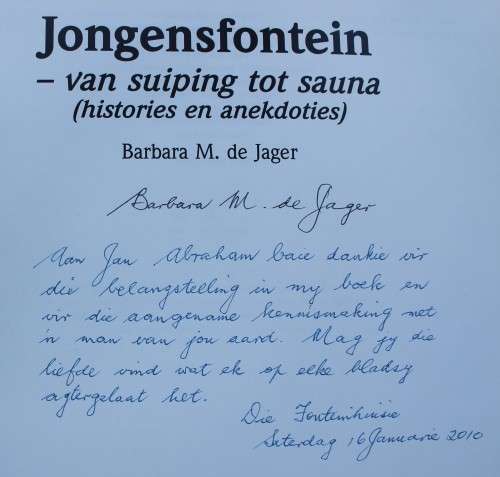 Jongensfontein
– van suiping tot sauna
(histories en anekdoties)
Barbara M. de Jager
Barbara M. de Jager
Aan Jan Abraham baie dankie vir
die belangstelling in my boek en
vir die aangename kennismaking met
'n man van jou aard. Mag jy die
liefde vind wat ek op elke bladsy
agtergelaat het.
Die Fonteinhuisie
Saterdag 16 Januarie 2010